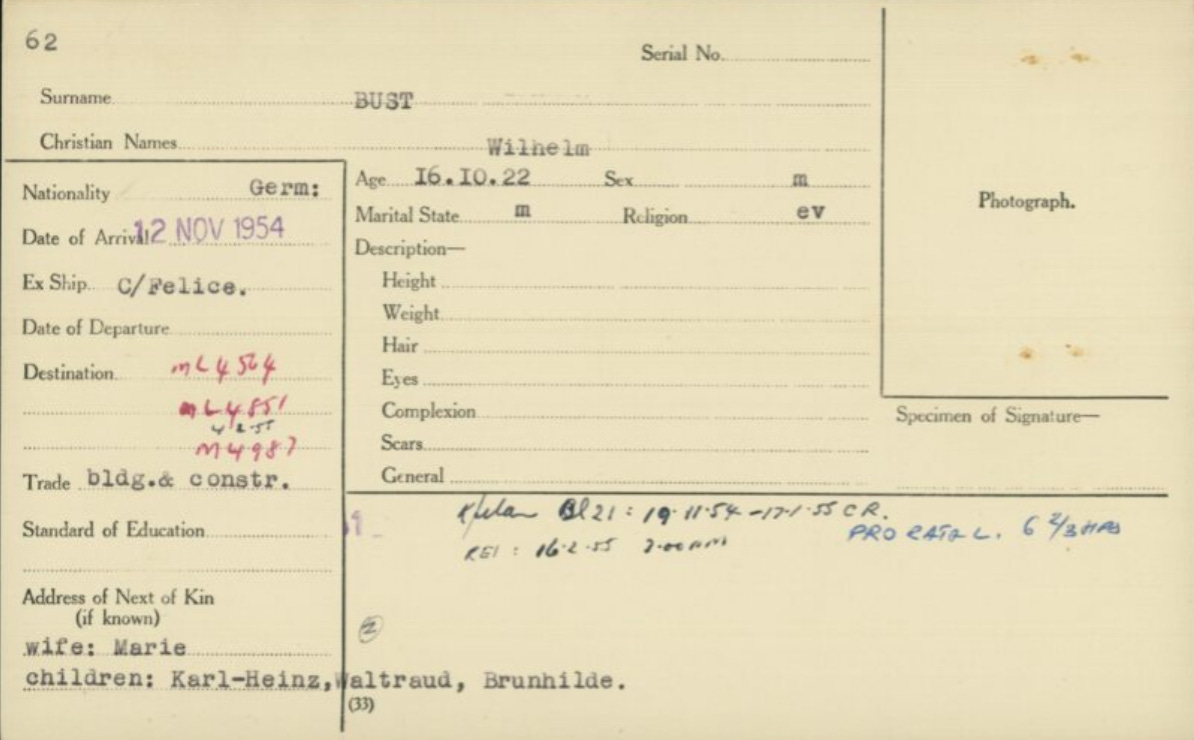 62
Serial No.
Surname BUST
Christian Names Wilhelm
Nationality Germ:
Date of Arrival 12 NOV 1954
Ex Ship C/Felice.
Date of Departure
Destination ML4564
ML4851
4 2-55
M4987
Trade bldg.& constr.
Standard of Education
Address of Next of Kin
(if known)
wife: Marie
children: Karl-Heinz, Waltraud, Brunhilde.
(33)
Age 16.10.22 Sex m
Marital State m Religion ev
Description—
Height
Weight
Hair
Eyes
Complexion
Scars
General
Photograph.
Specimen of Signature—
Bl 21: 19-11-54 - 17-1-55 C R.
PRO RATA L. 6 2/3 HRS
REI: 16-2-55 7-00 AM
2